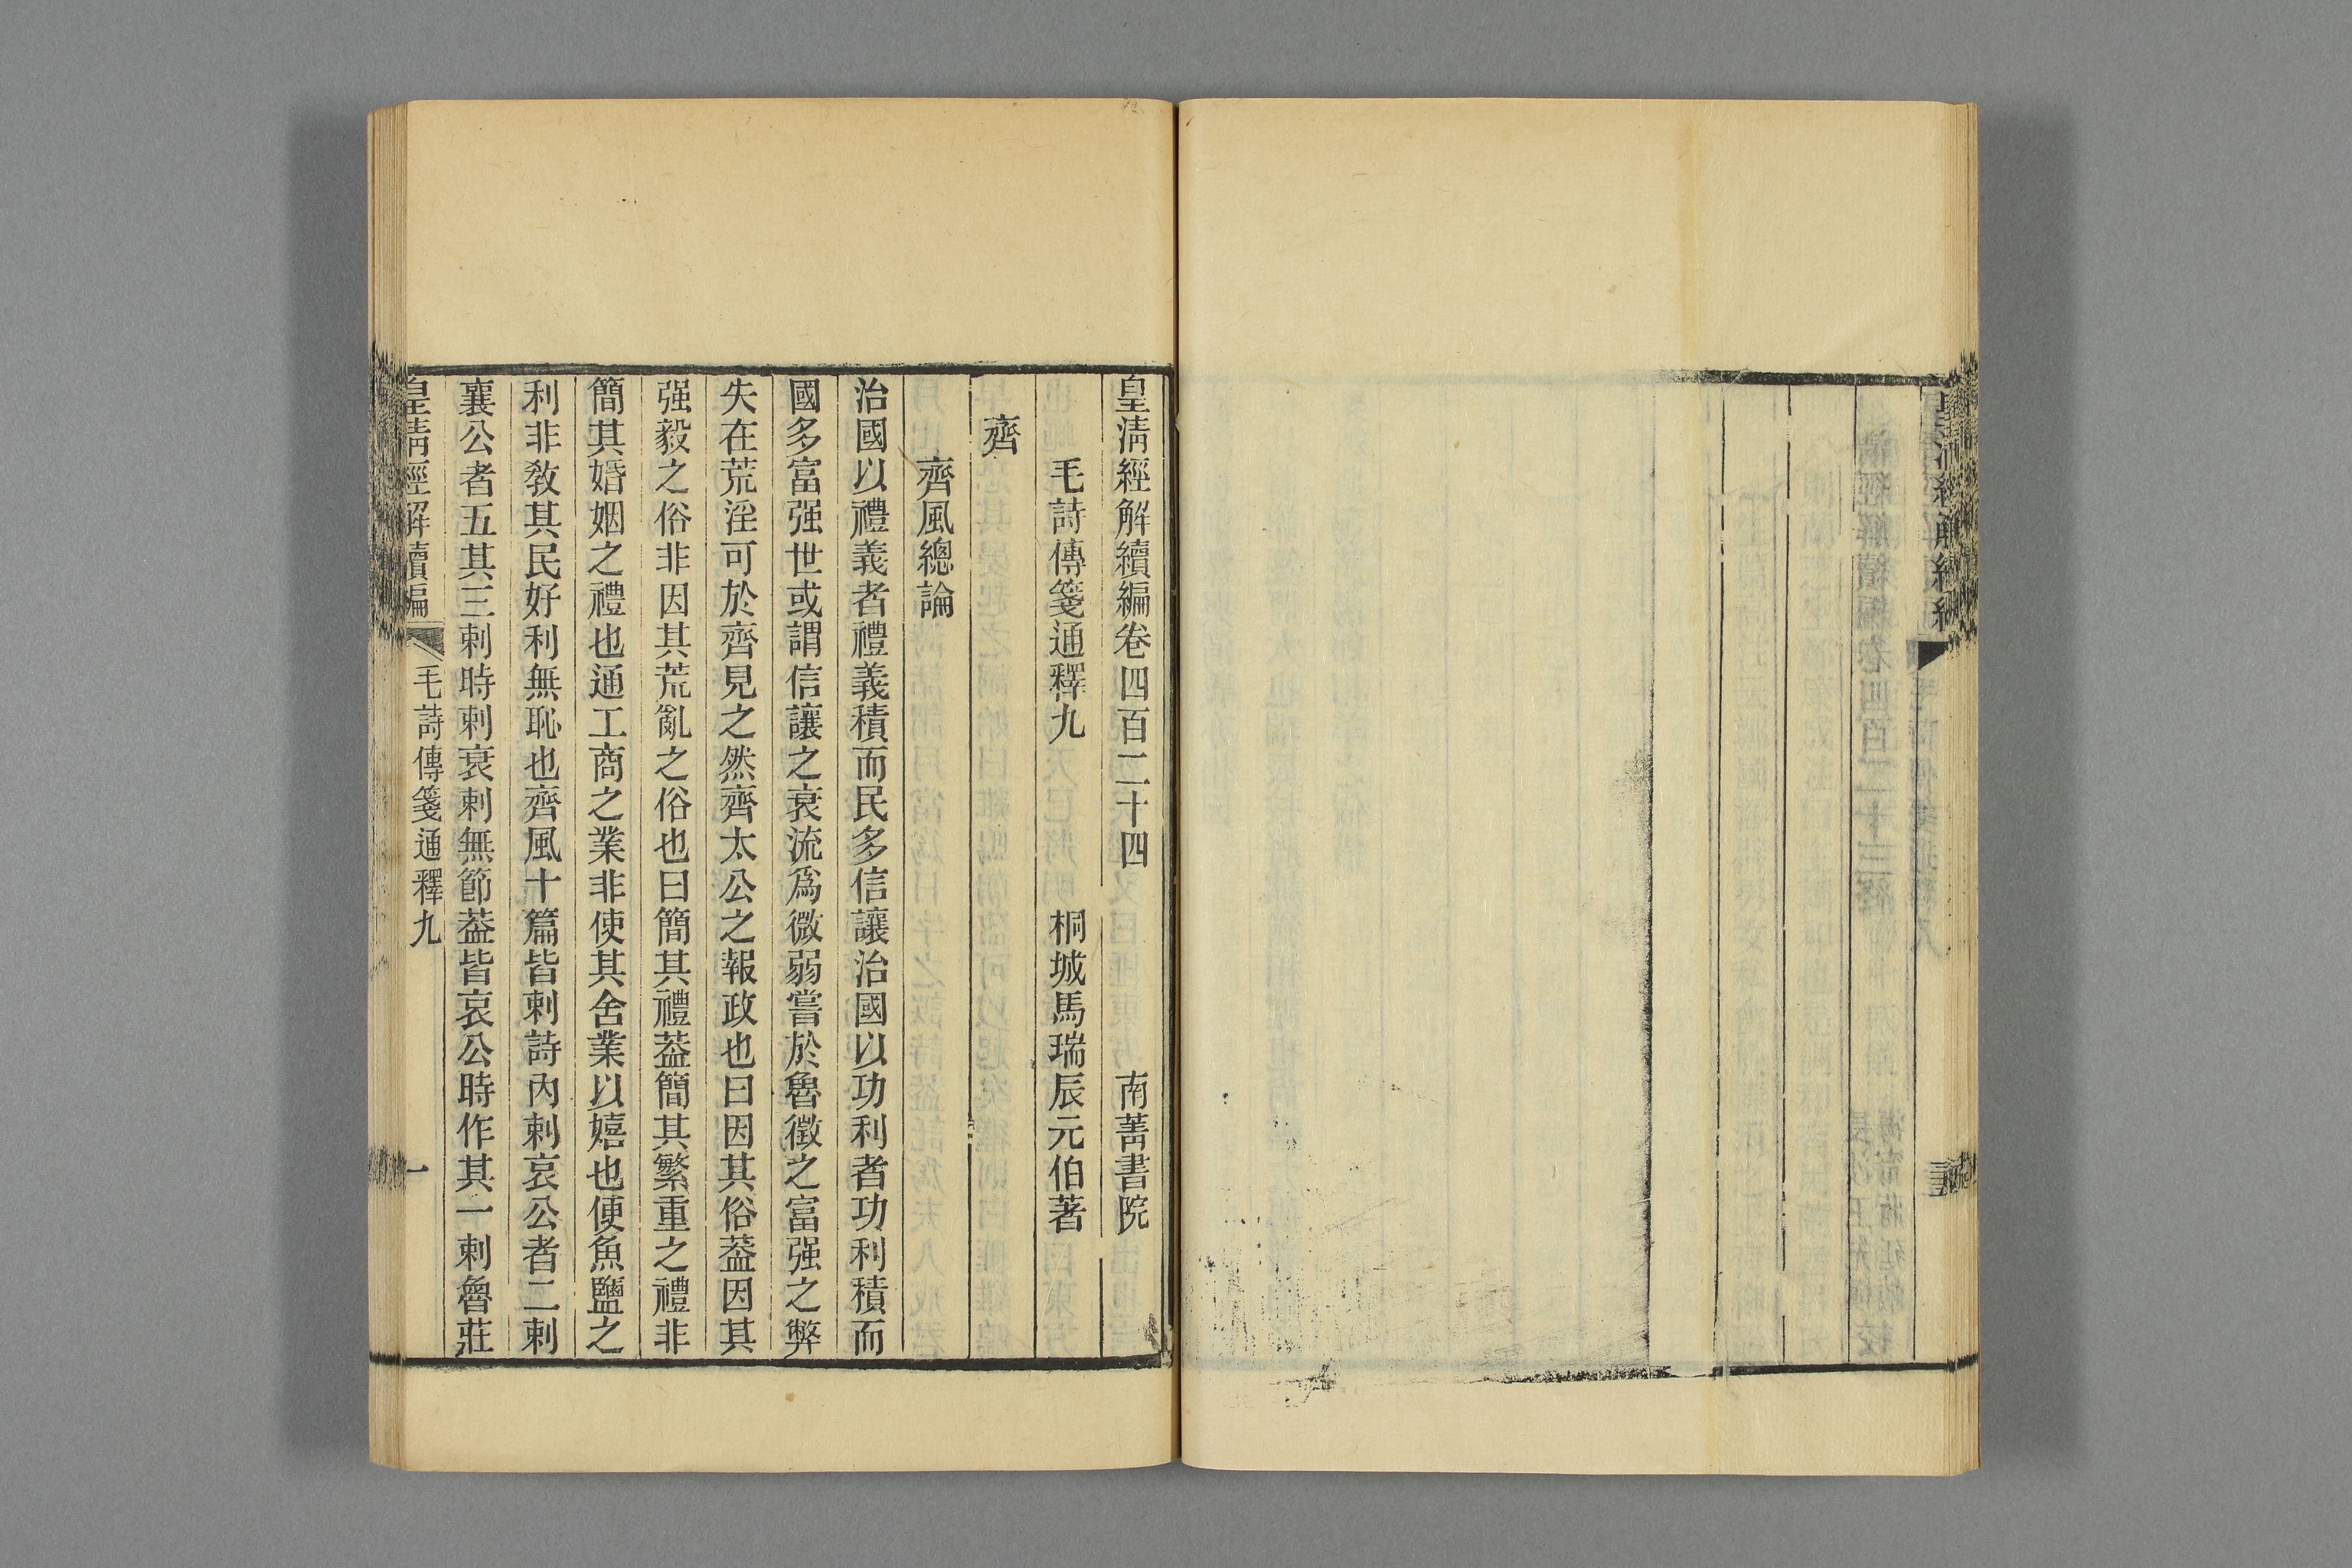 皇清經解續編卷四百二十四 南菁書院
毛詩傳箋通釋九 桐城馬瑞辰元伯著
齊
齊風總論
治國以禮義者禮義積而民多信讓治國以功利者功利積而
國多富强世或謂信讓之衰流爲微弱嘗於魯徵之富强之弊
失在荒淫可於齊見之然齊太公之報政也曰因其俗葢因其
强毅之俗非因其荒亂之俗也曰簡其禮葢簡其繁重之禮非
簡其婚姻之禮也通工商之業非使其舍業以嬉也便魚鹽之
利非敎其民好利無恥也齊風十篇皆刺詩內刺哀公者二刺
襄公者五其三刺時刺衰刺無節葢皆哀公時作其一刺魯莊
皇清經解續編 毛詩傳箋通釋九 一